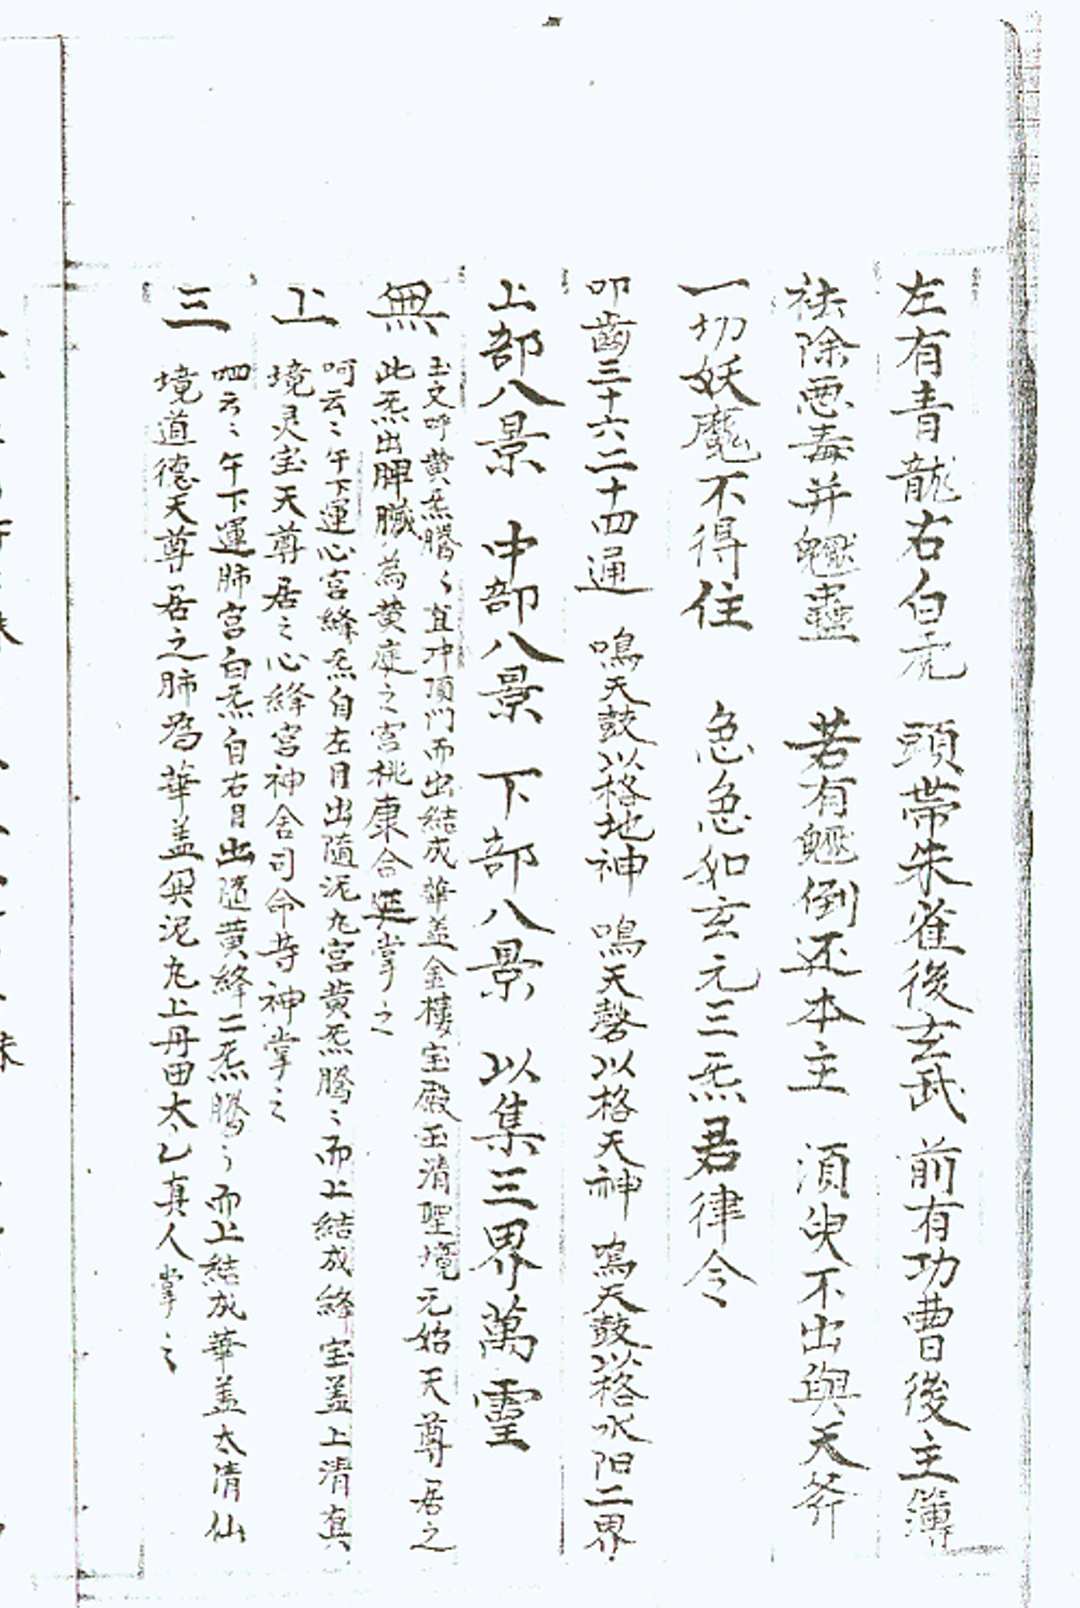 左有青龍右白虎　頭帶朱雀後玄武　前有功曹後主簿
祛除惡毒并魘蠱　若有魘倒还本主　須臾不出與天斧
一切妖魔不得住　急急如玄元三炁君律令
叩齒三十六二十四通　鳴天鼓以格地神　鳴天磬以格天神　鳴天鼓以格水阳二界
上部八景　中部八景　下部八景　以集三界萬靈
無
玉文吁黄炁騰〻直冲頂門而出結成華盖金樓宝殿玉清聖境元始天尊居之
此炁出脾臟為黄庭之宮桃康合延掌之
上
呵云〻午下運心宮絳炁自左目出隨泥丸宮黄炁騰〻而上結成絳宝盖上清真
境灵宝天尊居之心絳宮神舍司命等神掌之
三
呬云〻午下運肺宮白炁自右目出隨黄絳二炁騰〻而上結成華盖太清仙
境道德天尊居之肺為華盖與泥丸上丹田太乙真人掌之